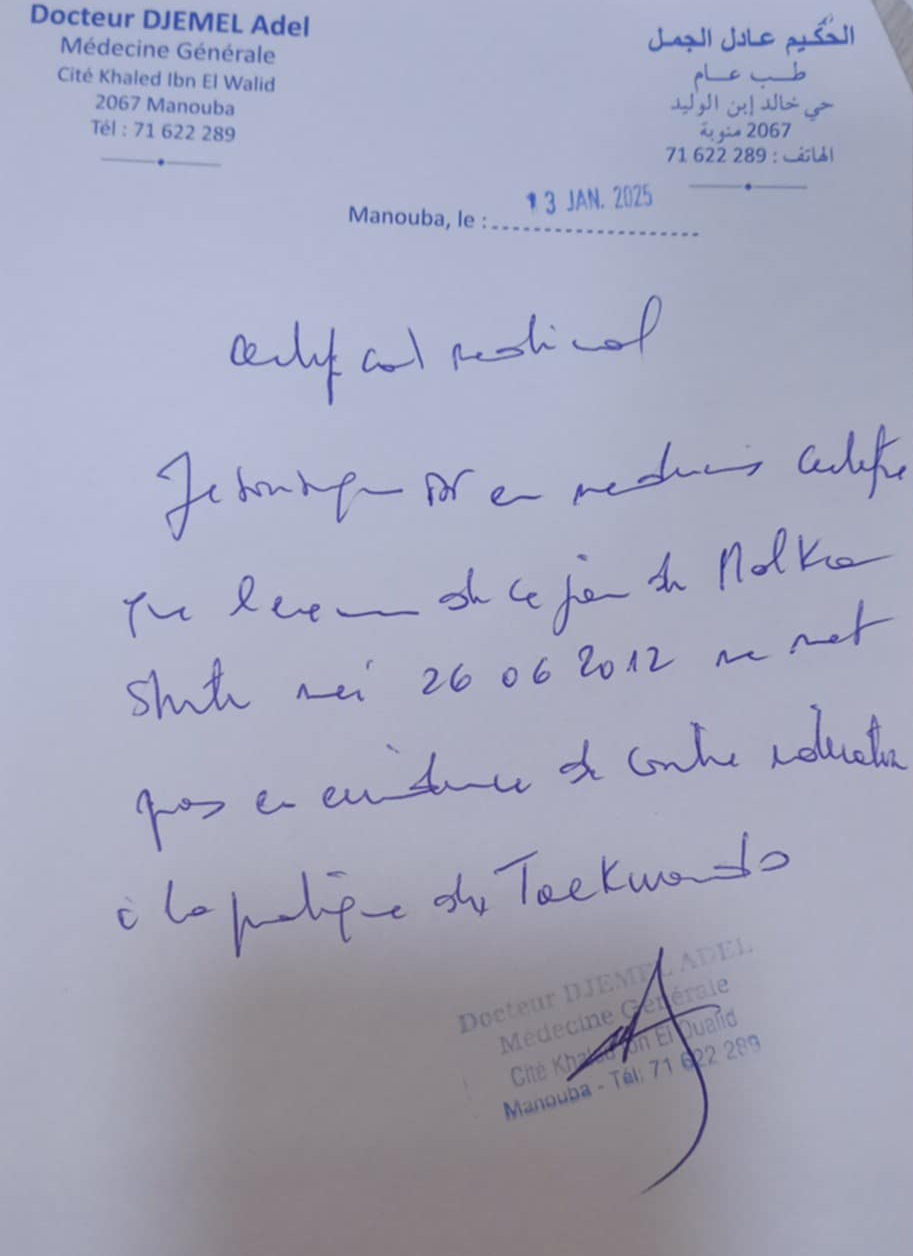 Docteur DJEMEL Adel
Médecine Générale
Cité Khaled Ibn El Walid
2067 Manouba
Tél : 71 622 289
الحكيم عادل الجمل
طب عام
حي خالد إبن الوليد
2067 منوبة
الهاتف : 289 622 71
Manouba, le : 13 JAN. 2025
Certificat medical
Je soussigné Dr en medecine certifie
que l'examen de ce jour de Molka
née 26 06 2012 ne met
pas en evidence de contre indication
à la pratique du Taekwondo
Docteur DJEMEL ADEL
Médecine Générale
Cité Khaled Ibn El Oualid
Manouba - Tél: 71 622 289